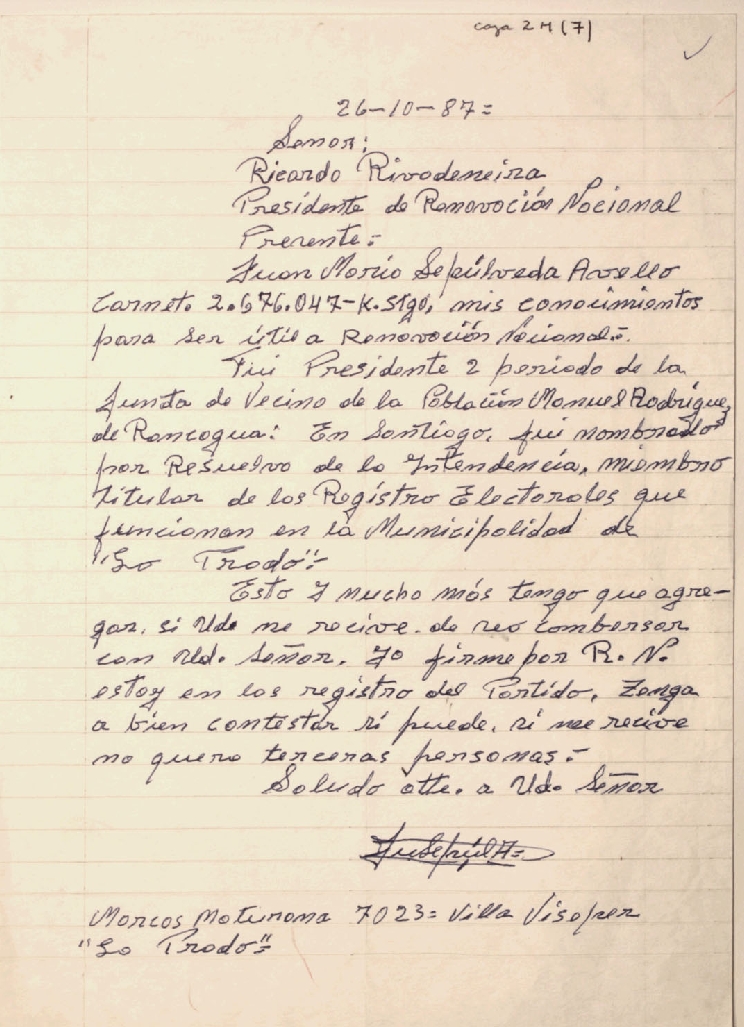 caja 2 M (7)
26-10-87=
Señor:
Ricardo Rivadeneira
Presidente de Renovación Nacional
Presente.-
Juan Mario Sepúlveda Avello
Carnet. 2.676.047-K. Stgo, mis conocimientos
para ser útil a Renovación Nacional.-
Fui Presidente 2 periodo de la
Junta de Vecino de la Población Manuel Rodríguez
de Rancagua: En Santiago, fui nombrado
por Resuelvo de la Intendencia, miembro
titular de los Registro Electorales que
funcionan en la Municipalidad de
"Lo Prado"-
Esto y mucho más tengo que agre-
gar, si Ud. me recive. deseo combersar
con Ud. Señor. Yo firme por R. N.
estoy en los registro del Partido, Tenga
a bien contestar si puede, si me recive
no quero terceras personas.-
Saludo atte. a Ud. Señor
Marcos Maturana 7023= Villa
"Lo Prado"=